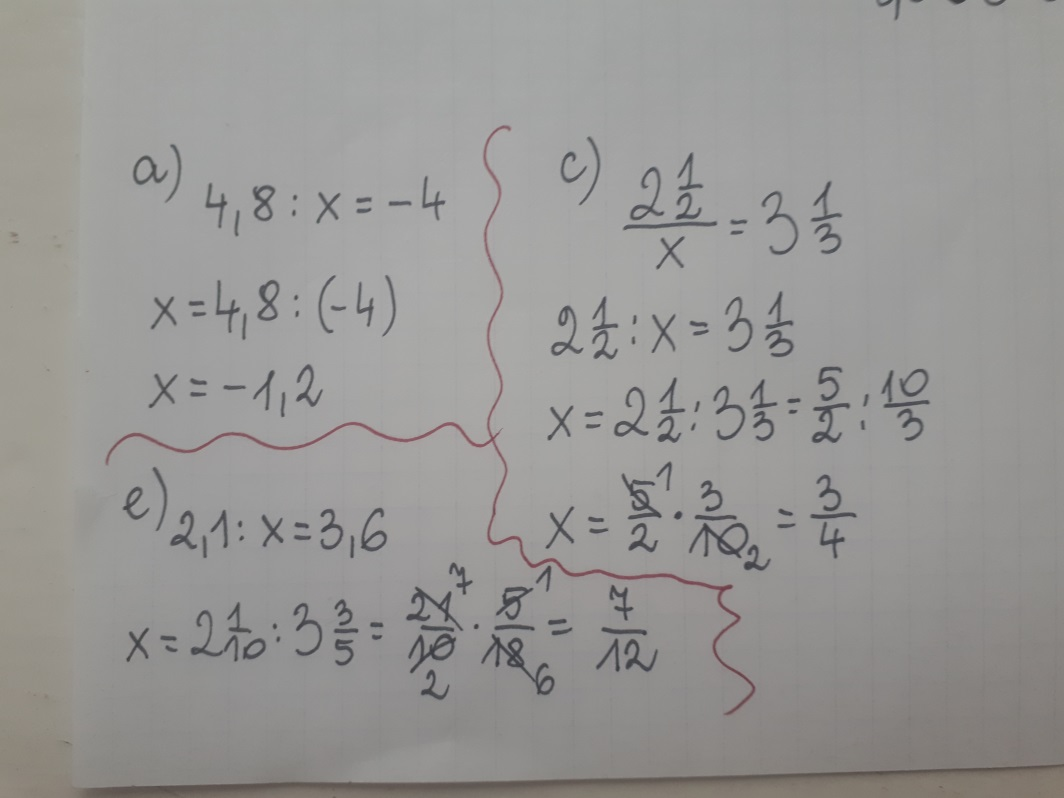 a)
4,8 : x = -4
x = 4,8 : (-4)
x = -1,2
c)
2 1/2 / x = 3 1/3
2 1/2 : x = 3 1/3
x = 2 1/2 : 3 1/3 = 5/2 : 10/3
x = 5/2 1 · 3/10 2 = 3/4
e)
2,1 : x = 3,6
x = 2 1/10 : 3 3/5 = 21/10 7 2 · 5/18 1 6 = 7/12